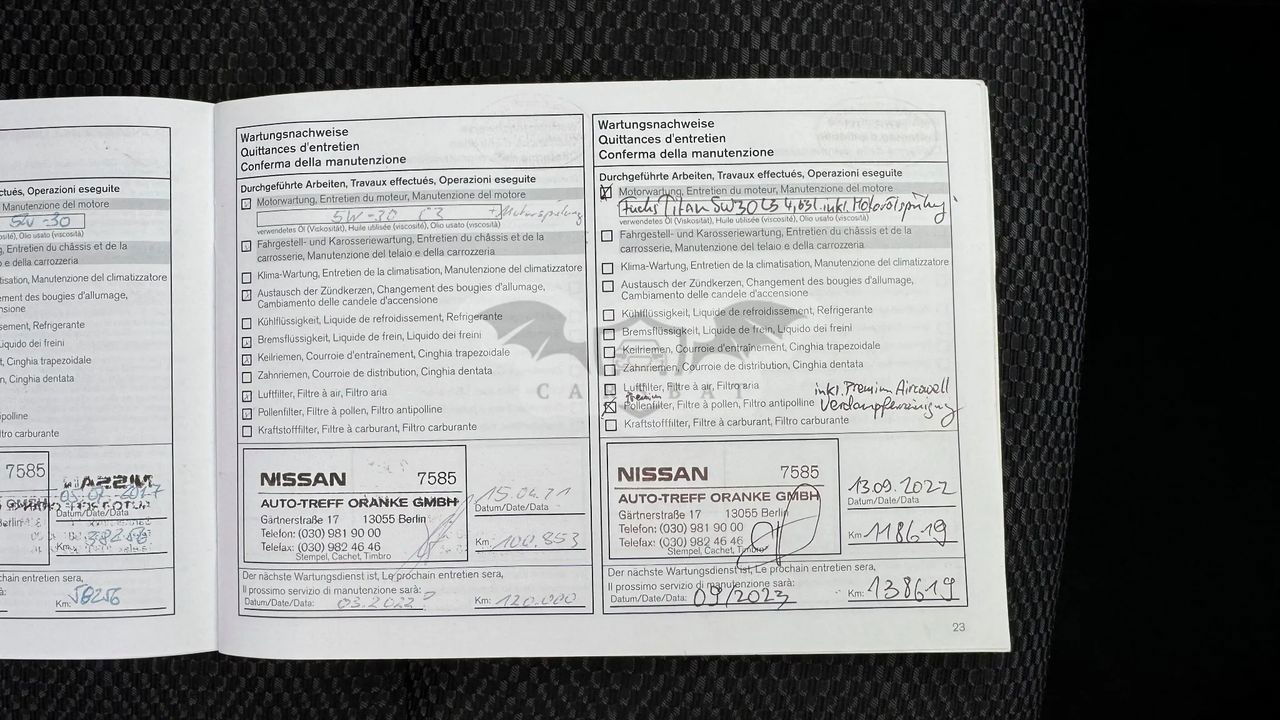 ctués, Operazioni eseguite
Manutenzione del motore
5W-30
osité), Olio usato (viscosità)
g, Entretien du châssis et de la
o e della carrozzeria
tisation, Manutenzione del climatizzatore
ment des bougies d'allumage,
nsione
sement, Refrigerante
Liquido dei freini
t, Cinghia trapezoidale
n, Cinghia dentata
tipolline
iltro carburante
7585
NISSAN
Datum/Date/Data
Berlin
Km:
38256
chain entretien sera,
à:
Km: 58256
Wartungsnachweise
Quittances d'entretien
Conferma della manutenzione
Durchgeführte Arbeiten, Travaux effectués, Operazioni eseguite
Motorwartung, Entretien du moteur, Manutenzione del motore
5W-30 C3 + Motorspülung
verwendetes Öl (Viskosität), Huile utilisée (viscosité), Olio usato (viscosità)
Fahrgestell- und Karosseriewartung, Entretien du châssis et de la
carrosserie, Manutenzione del telaio e della carrozzeria
Klima-Wartung, Entretien de la climatisation, Manutenzione del climatizzatore
Austausch der Zündkerzen, Changement des bougies d'allumage,
Cambiamento delle candele d'accensione
Kühlflüssigkeit, Liquide de refroidissement, Refrigerante
Bremsflüssigkeit, Liquide de frein, Liquido dei freini
Keilriemen, Courroie d'entraînement, Cinghia trapezoidale
Zahnriemen, Courroie de distribution, Cinghia dentata
Luftfilter, Filtre à air, Filtro aria
Pollenfilter, Filtre à pollen, Filtro antipolline
Kraftstofffilter, Filtre à carburant, Filtro carburante
NISSAN 7585
AUTO-TREFF ORANKE GMBH
Gärtnerstraße 17 13055 Berlin
Telefon: (030) 981 90 00
Telefax: (030) 982 46 46
Stempel, Cachet, Timbro
15.04.21
Datum/Date/Data
Km: 100.853
Der nächste Wartungsdienst ist, Le prochain entretien sera,
Il prossimo servizio di manutenzione sarà:
Datum/Date/Data: 03.2022 Km: 120.000
Wartungsnachweise
Quittances d'entretien
Conferma della manutenzione
Durchgeführte Arbeiten, Travaux effectués, Operazioni eseguite
Motorwartung, Entretien du moteur, Manutenzione del motore
Fuchs Titan 5W30 C3 4,65l inkl. Motorölspülung
verwendetes Öl (Viskosität), Huile utilisée (viscosité), Olio usato (viscosità)
Fahrgestell- und Karosseriewartung, Entretien du châssis et de la
carrosserie, Manutenzione del telaio e della carrozzeria
Klima-Wartung, Entretien de la climatisation, Manutenzione del climatizzatore
Austausch der Zündkerzen, Changement des bougies d'allumage,
Cambiamento delle candele d'accensione
Kühlflüssigkeit, Liquide de refroidissement, Refrigerante
Bremsflüssigkeit, Liquide de frein, Liquido dei freini
Keilriemen, Courroie d'entraînement, Cinghia trapezoidale
Zahnriemen, Courroie de distribution, Cinghia dentata
Luftfilter, Filtre à air, Filtro aria
Premium inkl. Premium Aircowell
Pollenfilter, Filtre à pollen, Filtro antipolline Verdampferreinigung
Kraftstofffilter, Filtre à carburant, Filtro carburante
NISSAN 7585
AUTO-TREFF ORANKE GMBH
Gärtnerstraße 17 13055 Berlin
Telefon: (030) 981 90 00
Telefax: (030) 982 46 46
Stempel, Cachet, Timbro
13.09.2022
Datum/Date/Data
Km: 118619
Der nächste Wartungsdienst ist, Le prochain entretien sera,
Il prossimo servizio di manutenzione sarà:
Datum/Date/Data: 09/2023 Km: 138619
23